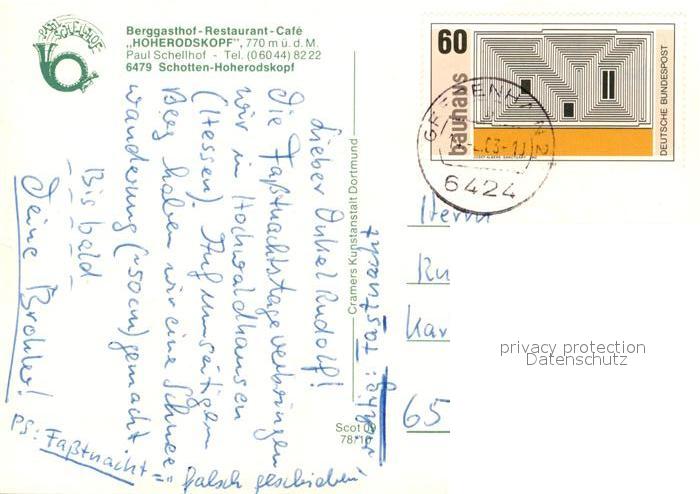 PAUL SCHELLHOF
Berggasthof - Restaurant - Café
„HOHERODSKOPF", 770 m ü. d. M.
Paul Schellhof - Tel. (0 60 44) 82 22
6479 Schotten-Hoherodskopf
Lieber Onkel Rudolf!
Die Faßtnachtstage verbringen
wir in Hochwaldhausen
(Hessen). Auf umseitigem
Berg haben wir eine Schnee-
wanderung (~50cm) gemacht
Bis bald
Deine Brohler!
PS: Faßtnacht = "falsch geschrieben"
richtig: Fastnacht
Cramers Kunstanstalt Dortmund
Scot 09
78/10
60
bauhaus
DEUTSCHE BUNDESPOST
6424
Herrn
Ru
Kar
65
privacy protection
Datenschutz